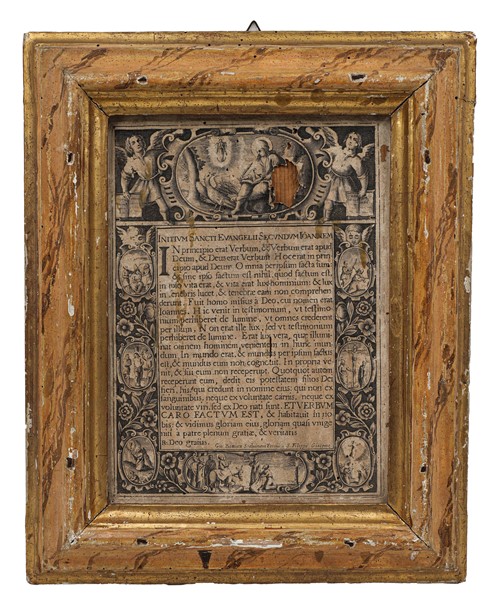 INITIVM SANCTI EVANGELII SECVNDVM IOANNEM
IN principio erat Verbum, & Verbum erat apud
Deum, & Deus erat Verbum. Hoc erat in prin
cipio apud Deum. Omnia per ipsum facta sunt
& sine ipso factum est nihil, quod factum est,
in ipso vita erat, & vita erat lux hominum: & lux
in tenebris lucet, & tenebræ eam non comprehen
derunt. Fuit homo missus à Deo, cui nomen erat
Ioannes. Hic venit in testimonium, vt testimo
nium perhiberet de lumine, vt omnes crederent
per illum. Non erat ille lux, sed vt testimonium
perhiberet de lumine. Erat lux vera, quæ illumi
nat omnem hominem venientem in hunc mun
dum. In mundo erat, & mundus per ipsum factus
est, & mundus eum non cognouit. In propria ve
nit, & sui eum non receperunt. Quotquot autem
receperunt eum, dedit eis potestatem filios Dei
fieri, his, qui credunt in nomine eius: qui non ex
sanguinibus, neque ex voluntate carnis, neque ex
voluntate viri, sed ex Deo nati sunt. ET VERBVM
CARO FACTVM EST, & habitauit in no
bis: & vidimus gloriam eius, gloriam quasi vnige
niti a patre plenum gratiæ, & veritatis
R. Deo gratias.